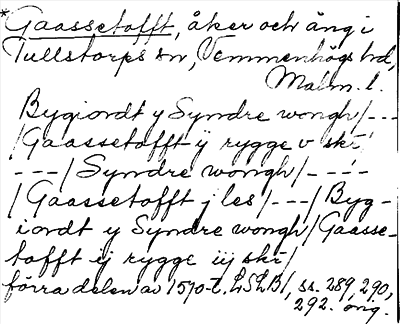 *Gaassetofft, åker och äng i
Tullstorps sn, Vemmenhögs hd,
Malm. l.
Bygiordt y Syndre wongh/---
/Gaassetofft ÿ rygge v ski/
---/Syndre wongh/----
/Gaassetofft j les/---/Byg-
iordt y Syndre wongh/Gaasse-
tofft ij rygge iij ski/
förra delen av 1570-t. LSLB1, ss. 289, 290,
292. orig.